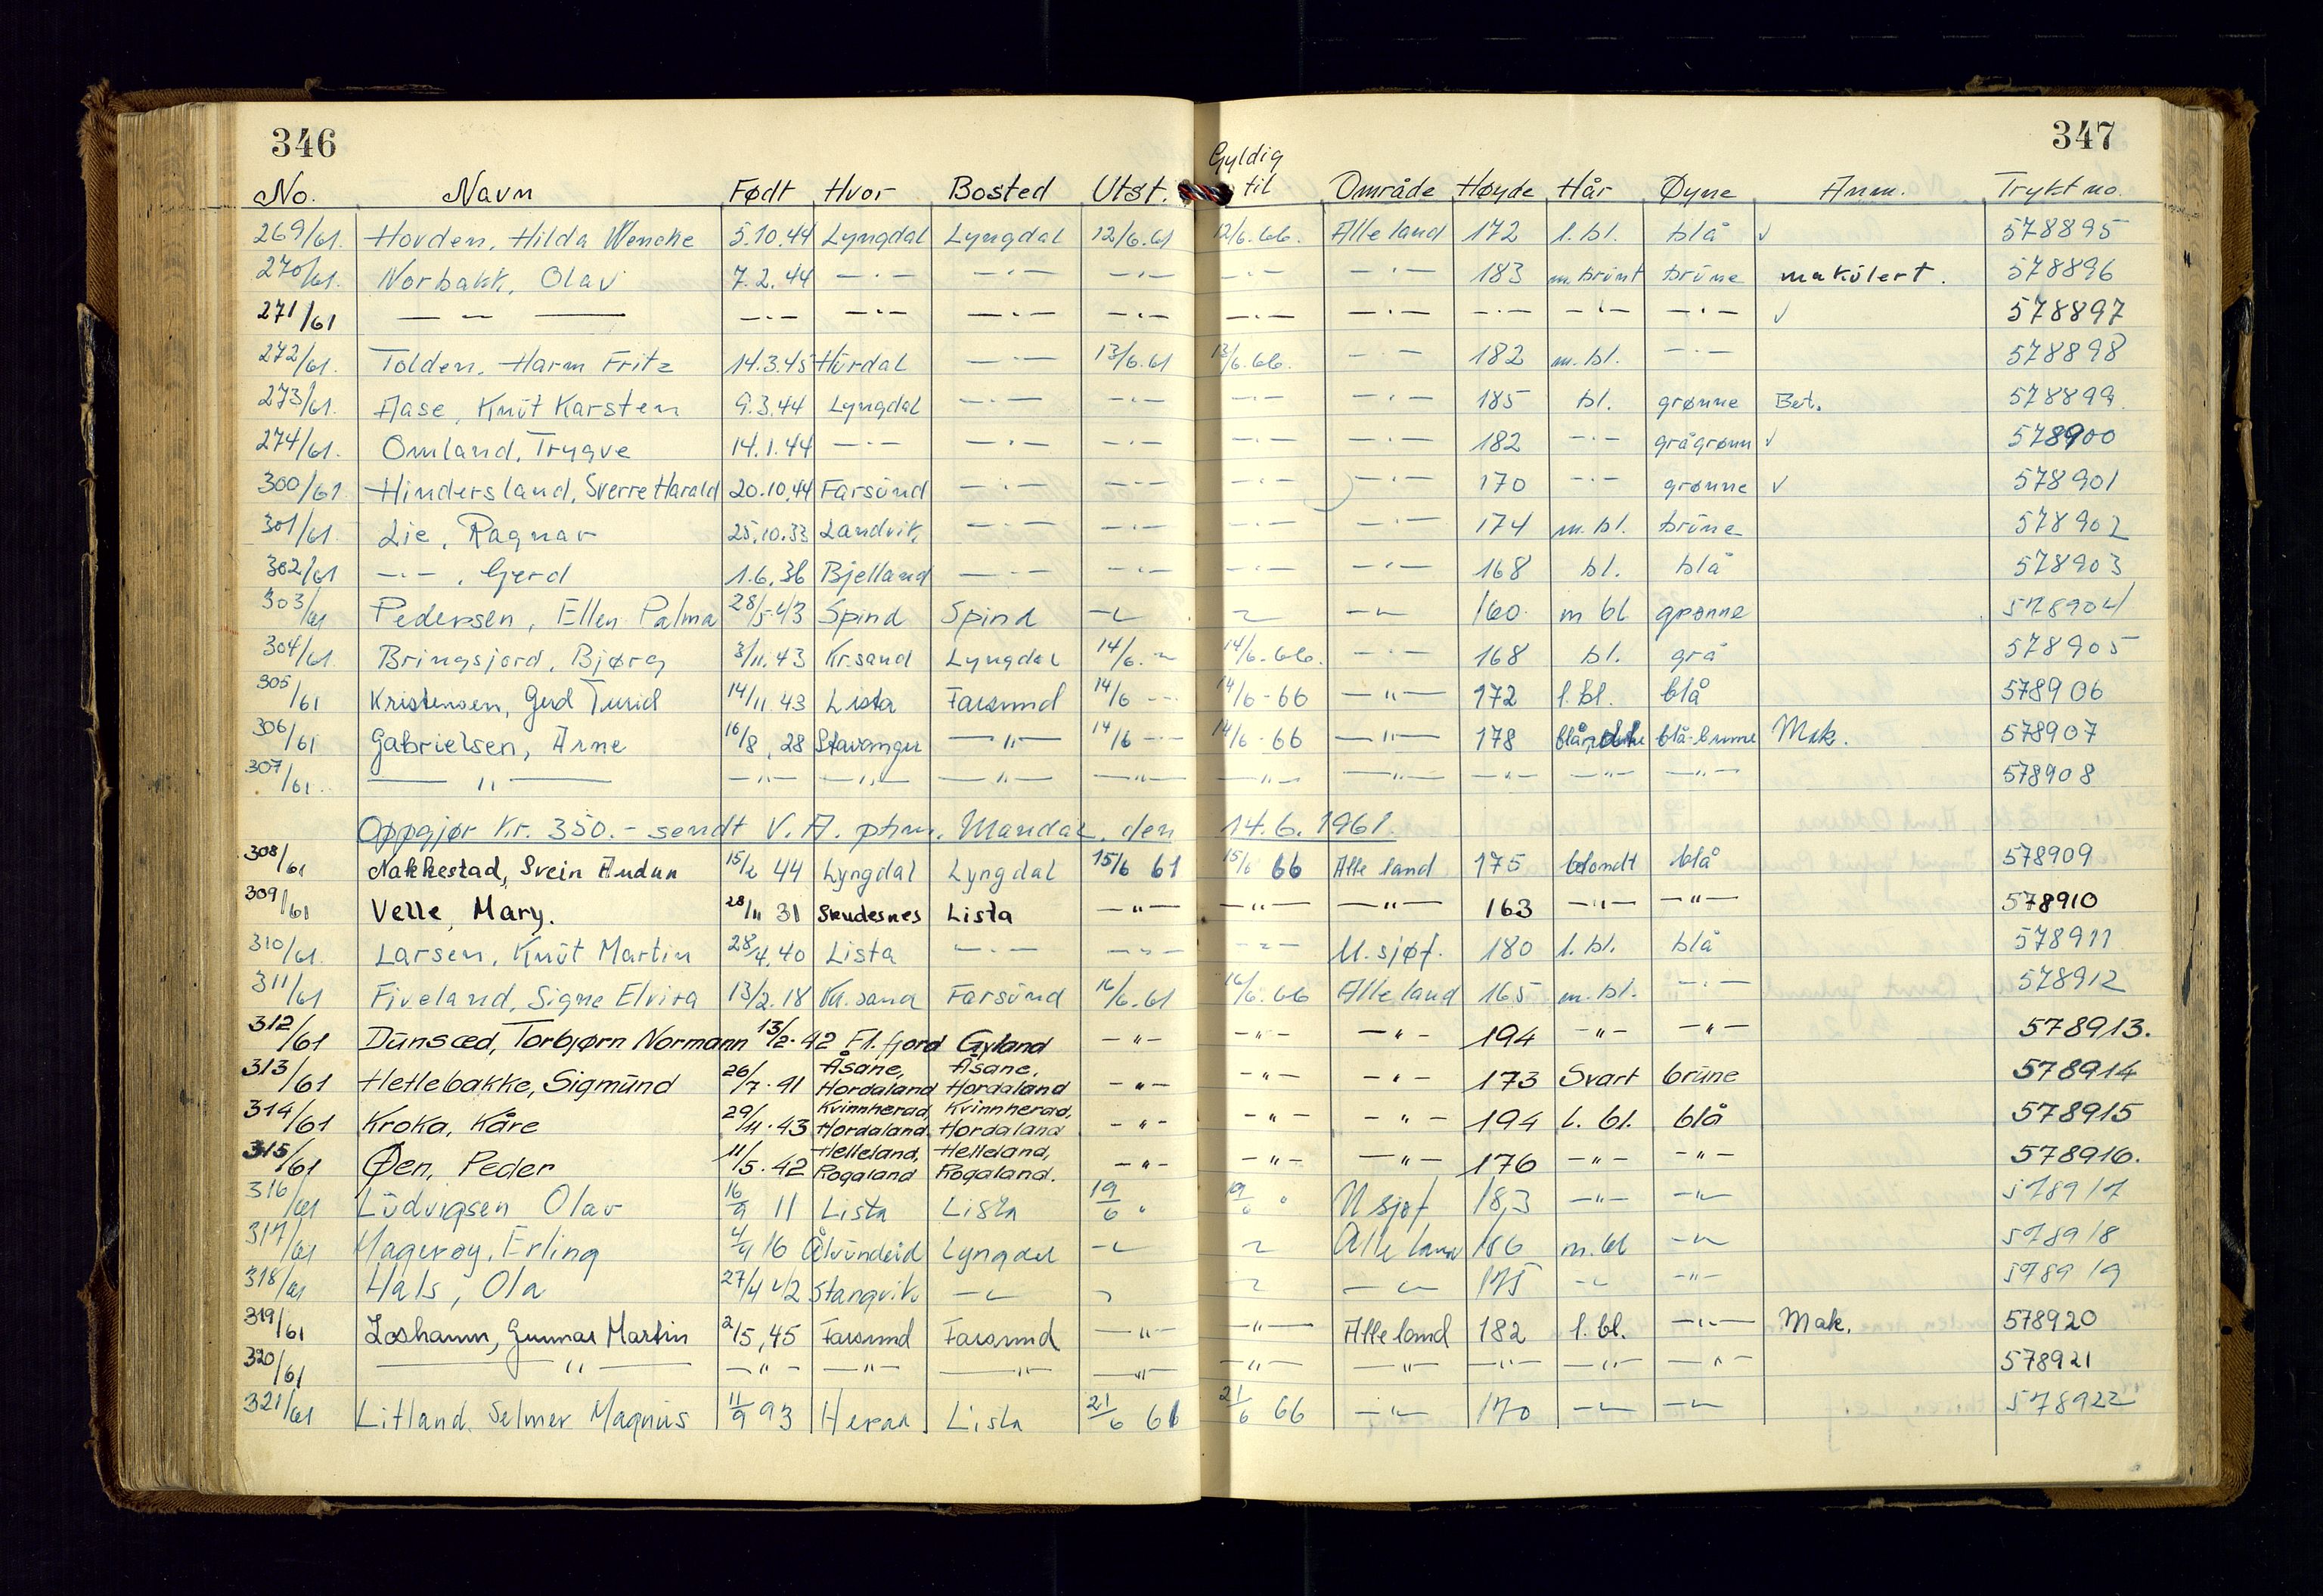 346
347
No. Navn Født Hvor Bosted Utst. Gyldig til Område Høyde Hår Øyne Anm. Trykt no.
269/61. Hovden, Hilda Wencke 5.10.44 Lyngdal Lyngdal 12/6.61 12/6.66. Alle land 172 l.bl. blå ✓ 578895
270/61. Norbakk, Olav 7.2.44 —·— —·— —·— —·— —·— 183 m.brunt brune makulert. 578896
271/61 — — — —·— —·— —·— —·— —·— —·— —·— —·— —·— ✓ 578897
272/61. Tolden, Harm Fritz 14.3.45 Hurdal —·— 13/6.61 13/6.66. —·— 182 m.bl. —·— 578898
273/61. Aase, Knut Karsten 9.3.44 Lyngdal —·— —·— —·— —·— 185 bl. grønne Bet. 578899
274/61. Omland, Trygve 14.1.44 —·— —·— —·— —·— —·— 182 —·— grågrønn ✓ 578900
300/61 Hindersland, Sverre Harald 20.10.44 Farsund —·— —·— —·— —·— 170 —·— grønne ✓ 578901
301/61 Lie, Ragnar 25.10.33 Landvik —·— —·— —·— —·— 174 m.bl. brune 578902
302/61 —·—, Gerd 1.6.36 Bjelland —·— —·— —·— —·— 168 bl. blå 578903
303/61 Pedersen, Ellen Palma 28/5.43 Spind Spind —"— —"— —"— 160. m bl grønne 578904
304/61. Bringsjord, Bjørg 3/11.43 Kr.sand Lyngdal 14/6.— 14/6-66. —·— 168 bl. grå 578905
305/61 Kristensen, Gerd Turid 14/11.43 Lista Farsund 14/6 — 14/6-66 —"— 172 l.bl. blå 578906
306/61 Gabrielsen, Arne 16/8,28 Stavanger —"— 14/6 — 14/6-66 —"— 178 blå-brune Mak. 578907
307/61. —"— —"— —"— —"— —"— —"— —"— —"— —"— —"— 578908
Oppgjør kr. 350.- sendt V.A. ptm. Mandal, den 14.6.1961.
308/61 Nakkestad, Svein Audun 15/2 44 Lyngdal Lyngdal 15/6 61 15/6 66 Alle land 175 blondt blå 578909
309/61 Velle, Mary. 28/11 31 Skudesnes Lista —"— —"— —"— 163 —"— —"— 578910
310/61. Larsen, Knut Martin 28/4.40 Lista —·— —"— —"— U.sjøf. 180 l.bl. blå 578911
311/61 Fiveland, Signe Elvira 13/2.18 Kr.sand Farsund 16/6.61 16/6.66 Alle land 165 m.bl. —·— 578912
312/61 Dunsæd, Torbjørn Normann 13/2.42 Fl.fjord Gyland —"— —"— —"— 194 —"— —"— 578913.
313/61 Hetlebakke, Sigmund 26/7.41 Åsane, Hordaland Åsane, Hordaland —"— —"— —"— 173 Svart brune 578914
314/61 Kroka, Kåre 29/11.43 Kvinnherad, Hordaland Kvinnherad, Hordaland —"— —"— —"— 194 l. bl. blå 578915
315/61 Øen, Peder 11/5.42 Helleland, Rogaland Helleland, Rogaland. —"— —"— —"— 176 —"— —"— 578916.
316/61 Ludvigsen Olav 16/9 11 Lista Lista 19/6 " 19/6 " U sjøf 183 —"— —"— 578917
317/61 Magerøy, Erling 4/4 16 Ålvundeid Lyngdal —"— —"— Alle land 186 m.bl —"— 578918
318/61 Hals, Ola 27/4 42 Stangvik —"— —"— —"— —"— 175 —"— —"— 578919
319/61 Loshamn, Gunnar Martin 2/5,45 Farsund Farsund —"— —"— Alle land 182 l.bl. —"— Mak. 578920
320/61 —"— —"— —"— —"— —"— —"— —"— —"— —"— —"— 578921
321/61 Litland, Selmer Magnus 11/9 93 Herad Lista 21/6 61 21/6 66 —"— 170 —"— —"— 578922